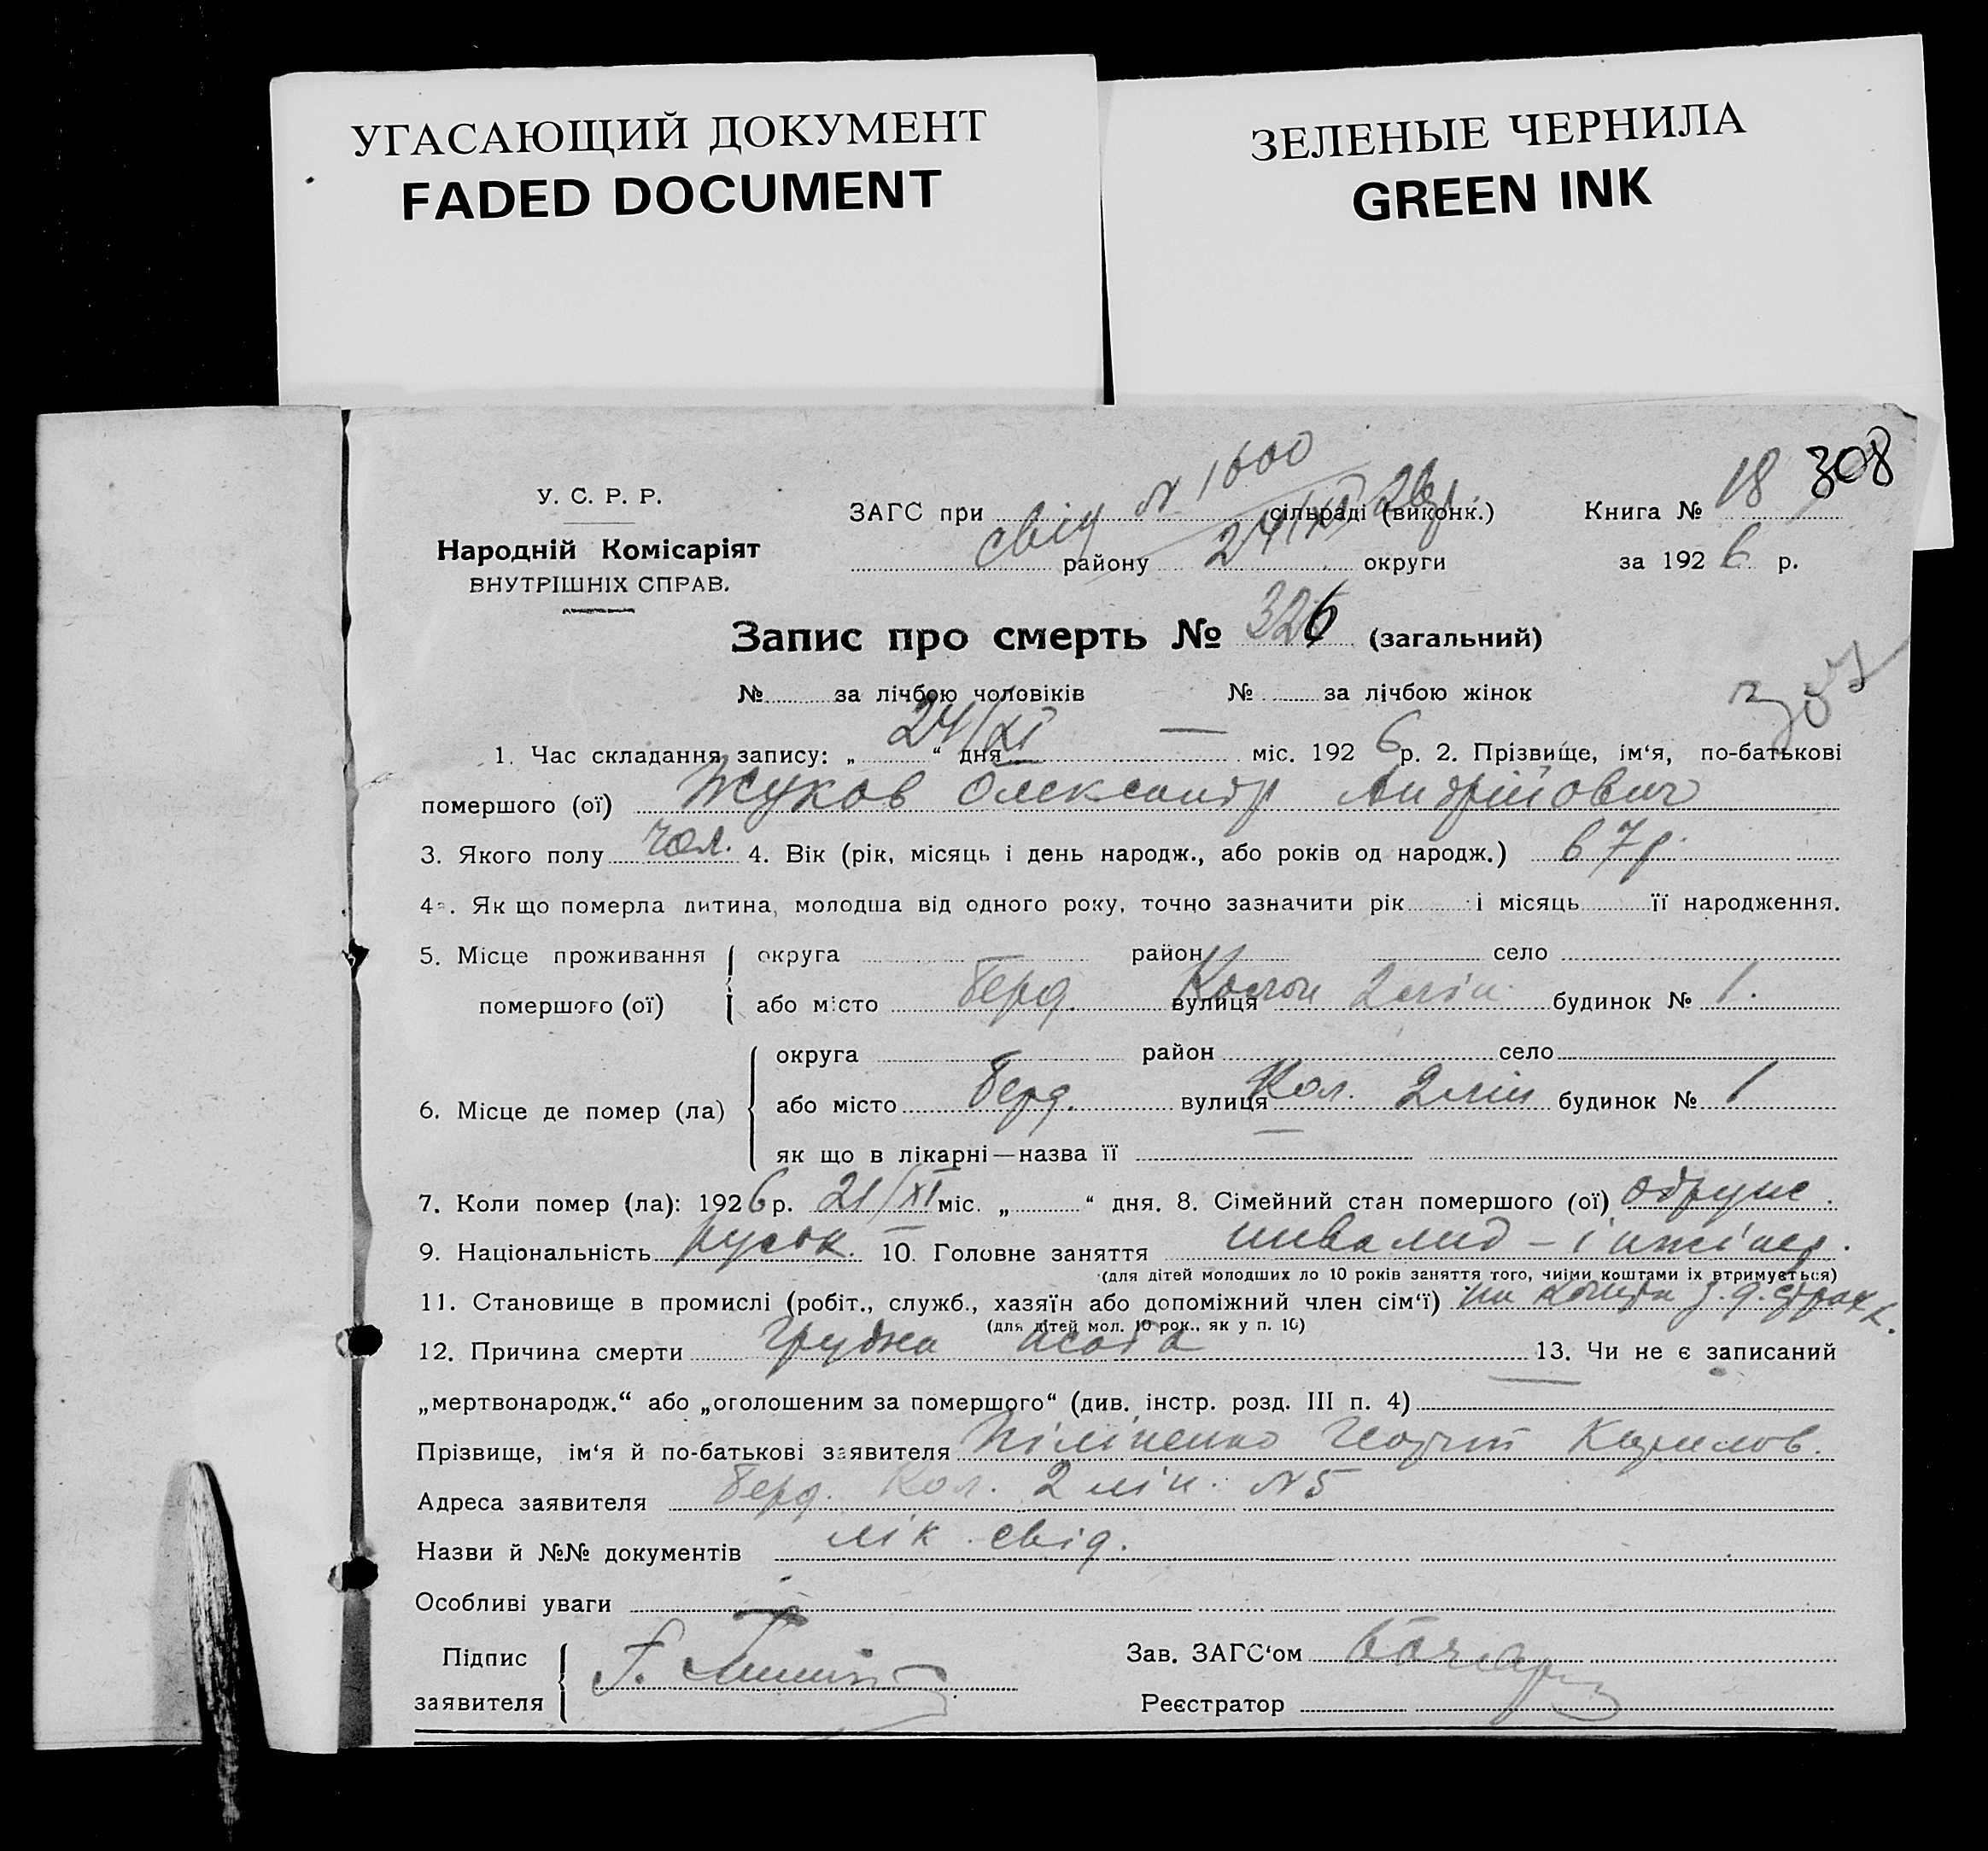 УГАСАЮЩИЙ ДОКУМЕНТ
FADED DOCUMENT
ЗЕЛЕНЫЕ ЧЕРНИЛА
GREEN INK
308
У. С. Р. Р.
Народній Комісаріят
ВНУТРІШНІХ СПРАВ.
свід № 1600
24/XI 26р.
ЗАГС при сільраді (виконк.)
району округи
Книга № 18
за 1926 р.
Запис про смерть № 326 (загальний)
№ за лічбою чоловіків № за лічбою жінок
307
1. Час складання запису: „24/XI“ дня — міс. 1926 р. 2. Прізвище, ім‘я, по-батькові
помершого (ої) Жуков Олександр Андрійович
3. Якого полу чол. 4. Вік (рік, місяць і день народж., або років од народж.) 67 р.
4а. Як що померла дитина, молодша від одного року, точно зазначити рік і місяць її народження.
5. Місце проживання помершого (ої) округа район село
або місто Берд. вулиця Колон 2 лін. будинок № 1.
6. Місце де помер (ла) округа район село
або місто Берд. вулиця Кол. 2 лін будинок № 1
як що в лікарні—назва її —
7. Коли помер (ла): 1926 р. 21/XI міс. „ “ дня. 8. Сімейний стан помершого (ої) одруже.
9. Національність руськ. 10. Головне заняття инвалид - інжінер.
(для дітей молодших до 10 років заняття того, чиїми коштами їх втримується)
11. Становище в промислі (робіт., служб., хазяїн або допоміжний член сім‘ї) на кошти
(для дітей мол. 10 рок., як у п. 10)
12. Причина смерти грудна жаба 13. Чи не є записаний
„мертвонародж.“ або „оголошеним за помершого“ (див. інстр. розд. III п. 4) —
Прізвище, ім‘я й по-батькові заявителя Кирилов.
Адреса заявителя Берд. Кол. 2 лін. № 5
Назви й №№ документів лік свід.
Особливі уваги —
Підпис заявителя
Зав. ЗАГС‘ом
Реєстратор